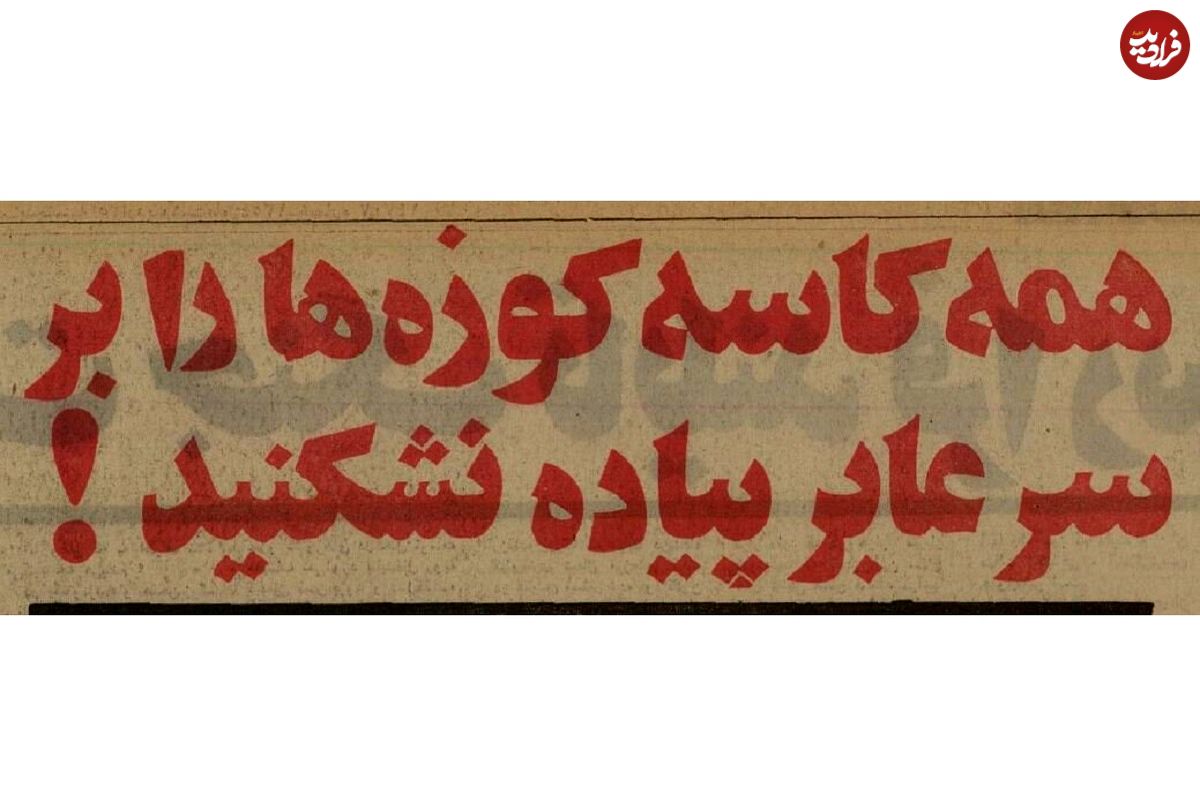 فرادید
همه کاسه کوزه‌ها را بر
سر عابر پیاده نشکنید !